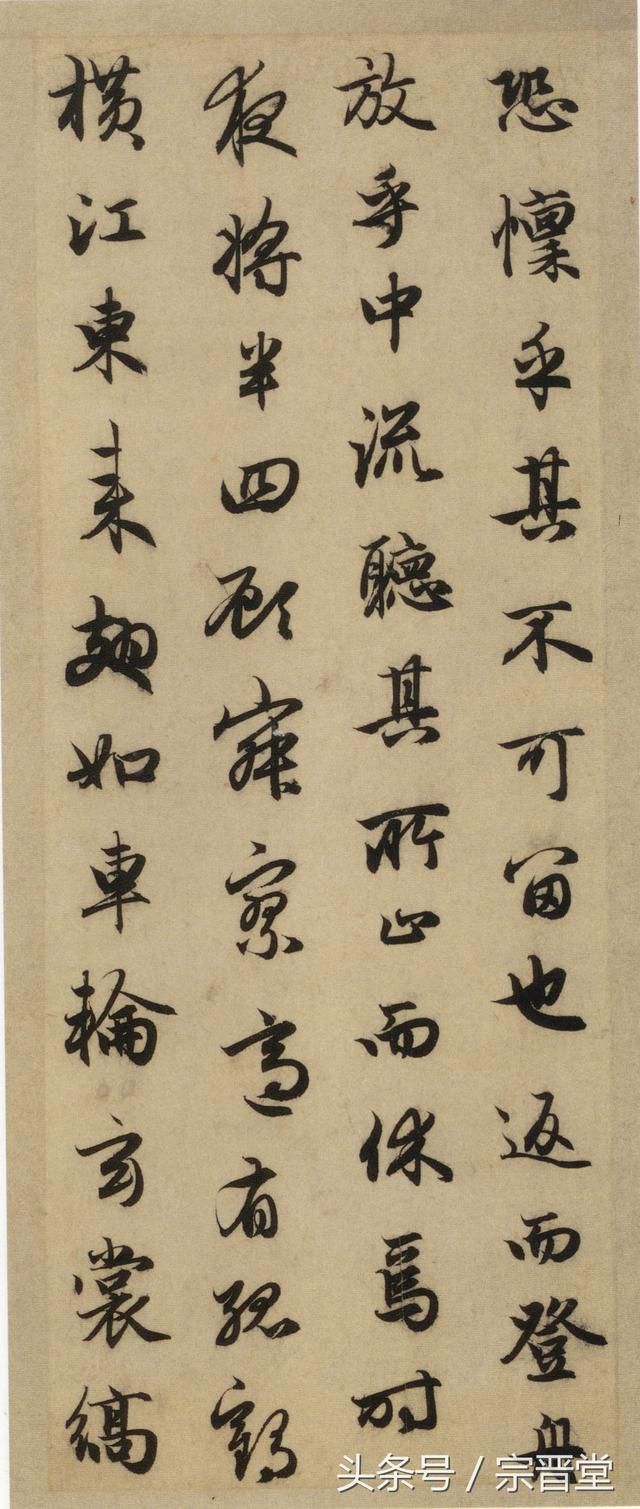 恐懍乎其不可留也返而登舟
放乎中流聽其所止而休焉时
夜将半四顾寂寥適有孤鶴
橫江東来翅如車輪玄裳縞
头条号 / 宗晋堂